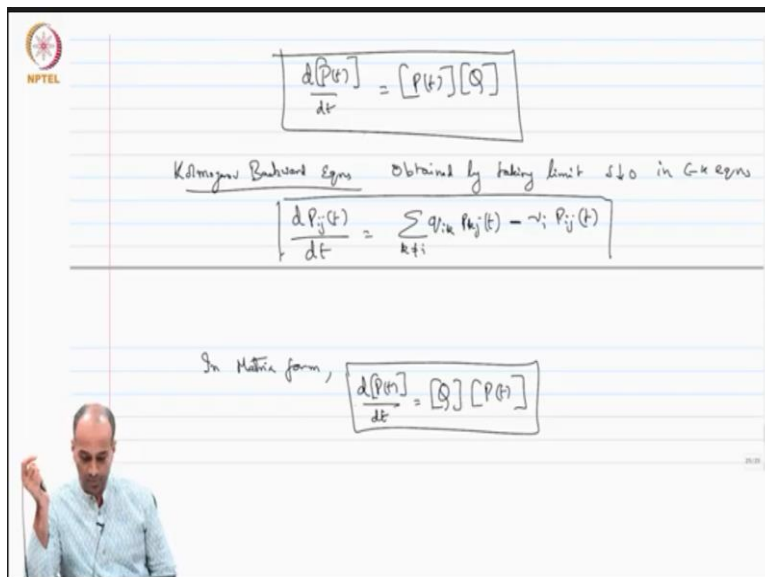 NPTEL
d[P(t)]/dt = [P(t)][Q]
Kolmogorov Backward Eqns Obtained by taking limit s↓0 in C-K eqns
dP_ij(t)/dt = ∑_{k≠i} q_ik P_kj(t) - ν_i P_ij(t)
In Matrix form, d[P(t)]/dt = [Q][P(t)]
25/25